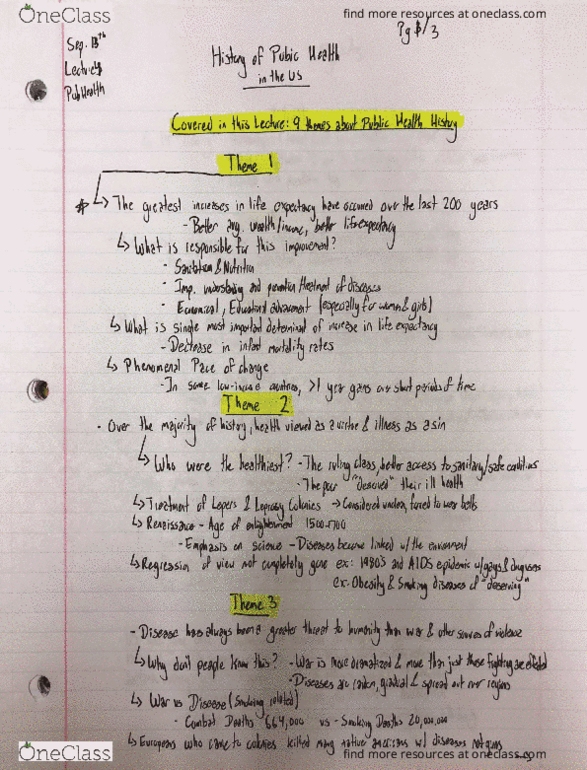 OneClass
find more resources at oneclass.com
Sep. 13th
Lecture
Pub Health
Pg 1/3
History of Pubic Health
in the US
Covered in this Lecture: 9 themes about Public Health History
Theme 1
The greatest increases in life expectancy have occurred over the last 200 years
- Better avg. wealth/income, better life expectancy
What is responsible for this improvement?
- Sanitation & Nutrition
- Imp. understanding and prevention/treatment of diseases
- Economical, Educational advancement (especially for women & girls)
What is single most important determinant of increase in life expectancy
- Decrease in infant mortality rates
Phenomenal Pace of change
- In some low-income countries, >1 year gains over short periods of time
Theme 2
- Over the majority of history, health viewed as a virtue & illness as a sin
Who were the healthiest? - The ruling class, better access to sanitary/safe conditions
- The poor "deserved" their ill health
Treatment of Lepers & Leprosy Colonies → Considered unclean, forced to wear bells
Renaissance - Age of enlightenment 1500-1700
- Emphasis on science - Diseases became linked w/ the environment
Regression of view not completely gone ex: 1980's and AIDS epidemic w/ gays & drug users
ex: Obesity & Smoking diseases of "deserving"
Theme 3
- Disease has always been a greater threat to humanity than war & other sources of violence
Why don't people know this? - War is more dramatized & more than just those fighting are affected
- Diseases are random, gradual & spread out over regions
War vs Disease (Smoking related)
- Combat Deaths 664,000 vs - Smoking Deaths 20,000,000
Europeans who came to colonies killed many native americans w/ diseases not guns
OneClass
find more resources at oneclass.com